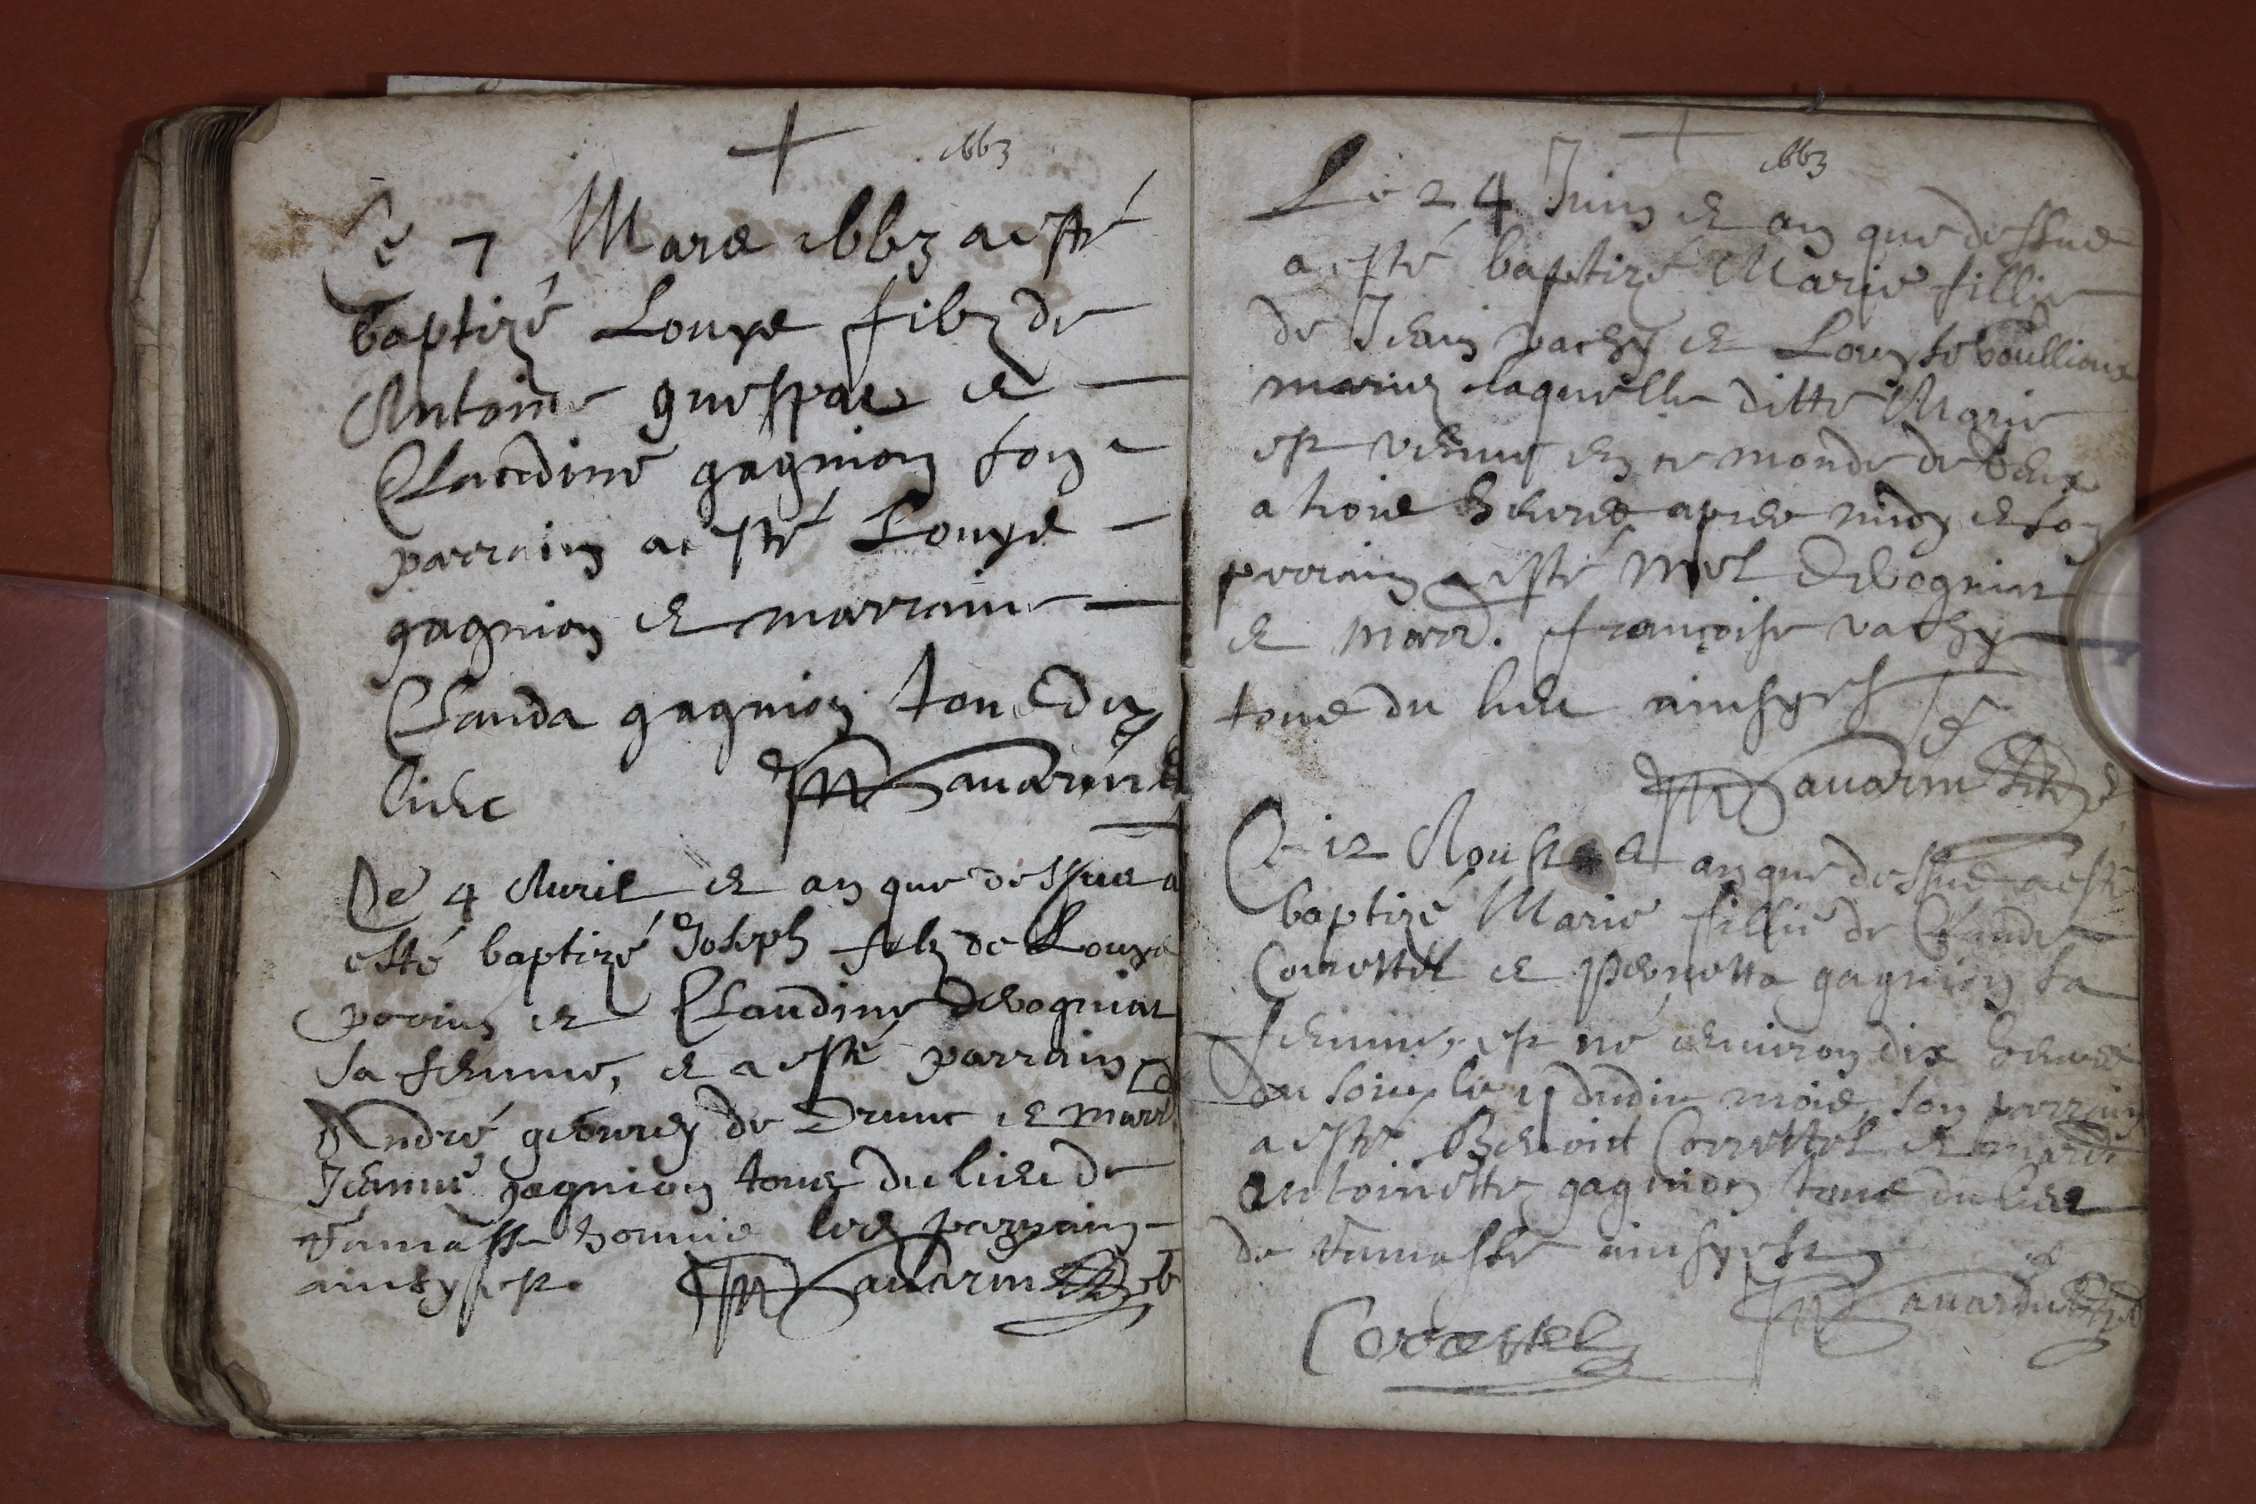 1663
Le 7 Mars 1663 a esté
baptizé Louys filz de
Antoine guespar et
Claudine gagnion son
parrain a esté Louys
gagnion et marraine
Clauda gagnion tous du
lieu
Savarin
Le 4 Avril et an que dessus a
esté baptizé Joseph filz de Louys
et Claudine devogniat
sa femme, et a esté parrain
André de et marr.
Jeanne gagnion tous du lieu de
hormis le parrain
ainsy est.
Savarin
1663
Le 24 Juin et an que dessus
a esté baptizé Marie fillie
de Jean vachy et Louyse
mariez laquelle ditte Marie
est venue en ce monde de deux
a trois heures apres midy et son
parrain a esté devogniat
et marr. françoise vachy
tous du lieu ainsy est
Savarin
Le 12 Aoust et an que dessus a esté
baptizé Marie fillie de Claude
Correttel et Pernetta gagnion sa
femme, est né environ dix heures
du soir le dudit mois, son parrain
a esté Benoist Correttel et marr.
Antoinette gagnion tous du lieu
de ainsy est
Savarin
Correttel